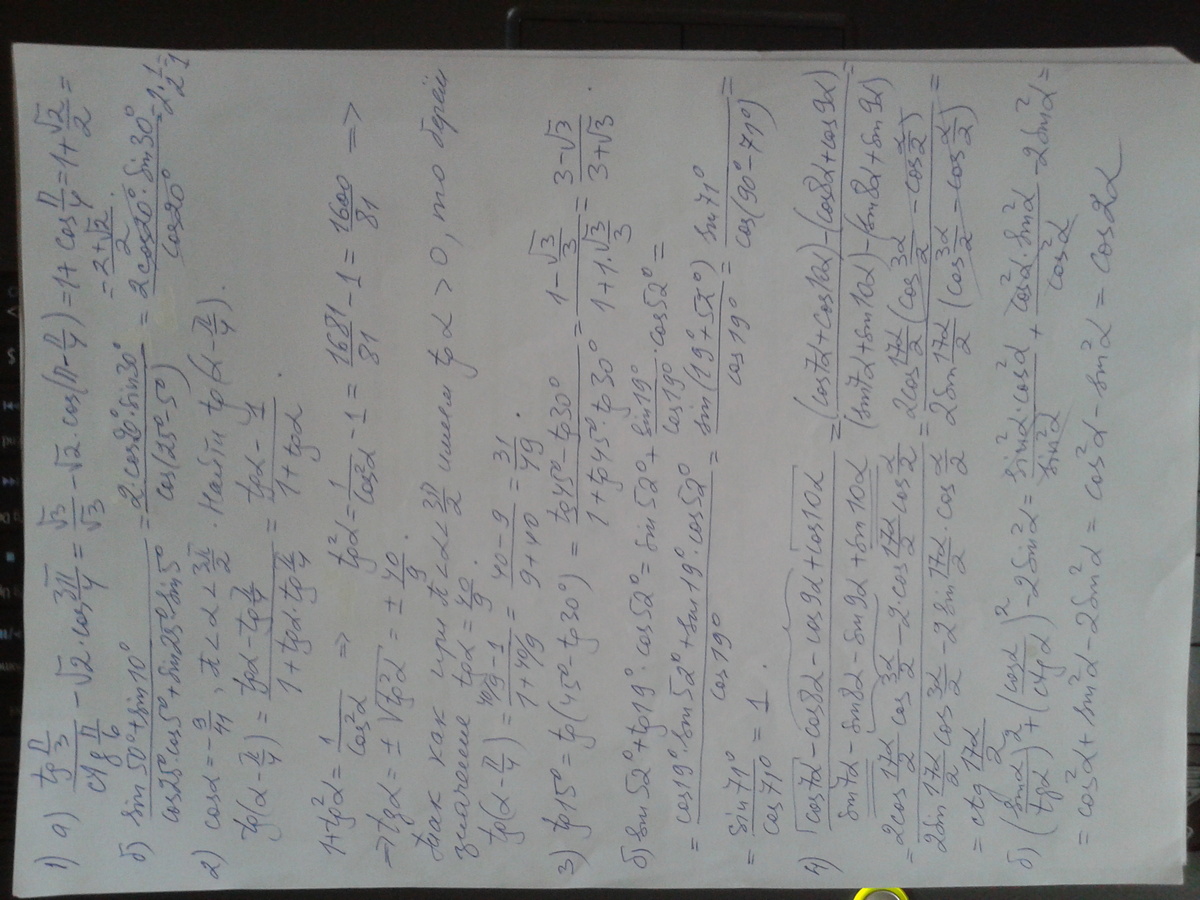 1) а) tg π/3 / ctg π/6 - √2 · cos 3π/4 = √3/√3 - √2 · cos(π - π/4) = 1 + cos π/4 = 1 + √2/2 =
= 2+√2/2
б) sin 50° + sin 10° / cos 25° · cos 5° + sin 25° · sin 5° = 2 · cos 20° · sin 30° / cos(25° - 5°) = 2 cos 20° · sin 30° / cos 20° = 2 · 1/2 = 1
2) cos α = - 9/41, π < α < 3π/2. Найти tg(α - π/4).
tg(α - π/4) = tg α - tg π/4 / 1 + tg α · tg π/4 = tg α - 1 / 1 + tg α.
1 + tg² α = 1/cos² α => tg² α = 1/cos² α - 1 = 1681/81 - 1 = 1600/81 =>
=> tg α = ± √tg² α = ± 40/9.
так как при π < α < 3π/2 имеем tg α > 0, то берём
значение tg α = 40/9.
tg(α - π/4) = 40/9 - 1 / 1 + 40/9 = 40 - 9 / 9 + 40 = 31/49.
3) tg 15° = tg(45° - tg 30°) = tg 45° - tg 30° / 1 + tg 45° · tg 30° = 1 - √3/3 / 1 + 1 · √3/3 = 3 - √3 / 3 + √3.
б) sin 52° + tg 19° · cos 52° = sin 52° + sin 19°/cos 19° · cos 52° =
= cos 19° · sin 52° + sin 19° · cos 52° / cos 19° = sin(19° + 52°) / cos 19° = sin 71° / cos(90° - 71°) =
= sin 71° / cos 71° = 1.
4) cos 7α - cos 8α - cos 9α + cos 10α / sin 7α - sin 8α - sin 9α + sin 10α = (cos 7α + cos 10α) - (cos 8α + cos 9α) / (sin 7α + sin 10α) - (sin 8α + sin 9α) =
= 2 cos 17α/2 cos 3α/2 - 2 · cos 17α/2 cos α/2 / 2 sin 17α/2 cos 3α/2 - 2 sin 17α/2 · cos α/2 = 2 cos 17α/2 (cos 3α/2 - cos α/2) / 2 sin 17α/2 (cos 3α/2 - cos α/2) =
= ctg 17α/2
б) (sin α / tg α)² + (cos α / ctg α)² - 2 sin² α = sin² α · cos² α / sin² α + cos² α · sin² α / cos² α - 2 sin² α =
= cos² α + sin² α - 2 sin² α = cos² α - sin² α = cos 2α